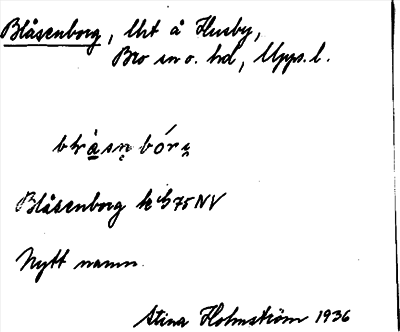 Blåsenborg, lht å Husby,
Bro sn o. hd, Upps. l.
Blåsenborg k 75 NV
Nytt namn.
Stina Holmström 1936